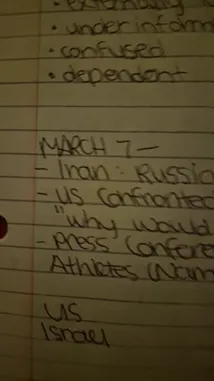 • under inform
• confused
• dependent
MARCH 7 —
- Iran: Russia
- US Confronted
"Why would
- Press Confere
Athletes
US
Israel